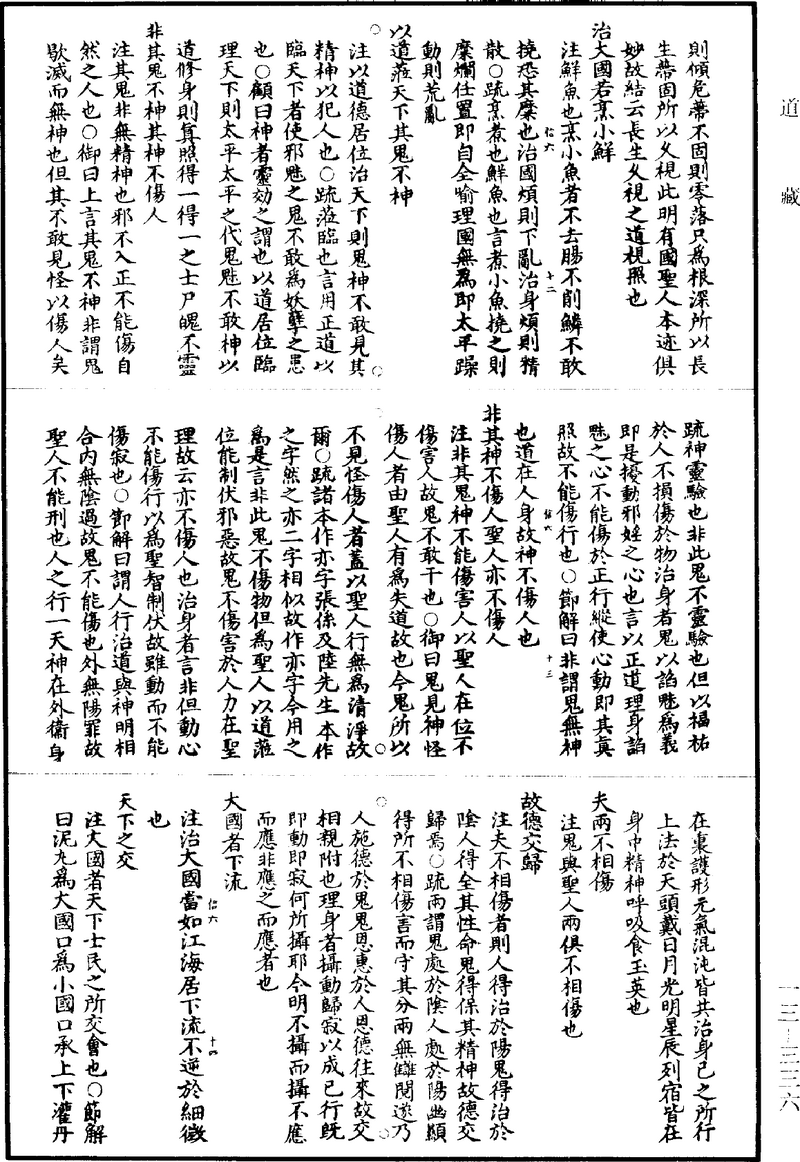 道藏
則傾危蔕不固則零落只爲根深所以長
生蔕固所以久視此明有國聖人本迹俱
妙故結云長生久視之道視照也
治大國若烹小鮮
注鮮魚也烹小魚者不去腸不削鱗不敢
撓恐其糜也治國煩則下亂治身煩則精
散○疏烹煮也鮮魚也言煮小魚撓之則
糜爛任置即自全喻理國無爲即太平躁
動則荒亂
以道蒞天下其鬼不神
注以道德居位治天下則鬼神不敢見其
精神以犯人也○疏蒞臨也言用正道以
臨天下者使邪魅之鬼不敢爲妖孽之患
也○顧曰神者靈効之謂也以道居位臨
理天下則太平太平之代鬼魅不敢神以
道修身則算照得一得一之士尸魄不靈
非其鬼不神其神不傷人
注其鬼非無精神也邪不入正不能傷自
然之人也○御曰上言其鬼不神非謂鬼
歇滅而無神也但其不敢見怪以傷人矣
疏神靈驗也非此鬼不靈驗也但以福祐
於人不損傷於物治身者鬼以諂魅爲義
即是擾動邪婬之心也言以正道理身諂
魅之心不能傷於正行縱使心動即其真
照故不能傷行也○節解曰非謂鬼無神
也道在人身故神不傷人也
非其神不傷人聖人亦不傷人
注非其鬼神不能傷害人以聖人在位不
傷害人故鬼不敢干也○御曰鬼見神怪
傷人者由聖人有爲失道故也今鬼所以
不見怪傷人者蓋以聖人行無爲清淨故
爾○疏諸本作亦字張係及陸先生本作
之字然之亦二字相似故作亦字今用之
爲是言非此鬼不傷物但爲聖人以道蒞
位能制伏邪惡故鬼不傷害於人力在聖
理故云亦不傷人也治身者言非但動心
不能傷行以爲聖智制伏故雖動而不能
傷寂也○節解曰謂人行治道與神明相
合內無陰過故鬼不能傷也外無陽罪故
聖人不能刑也人之行一天神在外衞身
在裏護形元氣混沌皆共治身已之所行
上法於天頭戴日月光明星辰列宿皆在
身中精神呼吸食玉英也
夫兩不相傷
注鬼與聖人兩俱不相傷也
故德交歸
注夫不相傷者則人得治於陽鬼得治於
陰人得全其性命鬼得保其精神故德交
歸焉○疏兩謂鬼處於陰人處於陽幽顯
得所不相傷害而守其分兩無讎閱遂乃
人施德於鬼鬼恩惠於人恩德往來故交
相親附也理身者攝動歸寂以成已行既
即動即寂何所攝耶今明不攝而攝不應
而應非應之而應者也
大國者下流
注治大國當如江海居下流不逆於細微
也
天下之交
注大國者天下士民之所交會也○節解
曰泥丸爲大國口爲小國口承上下灌丹
一三—三三六